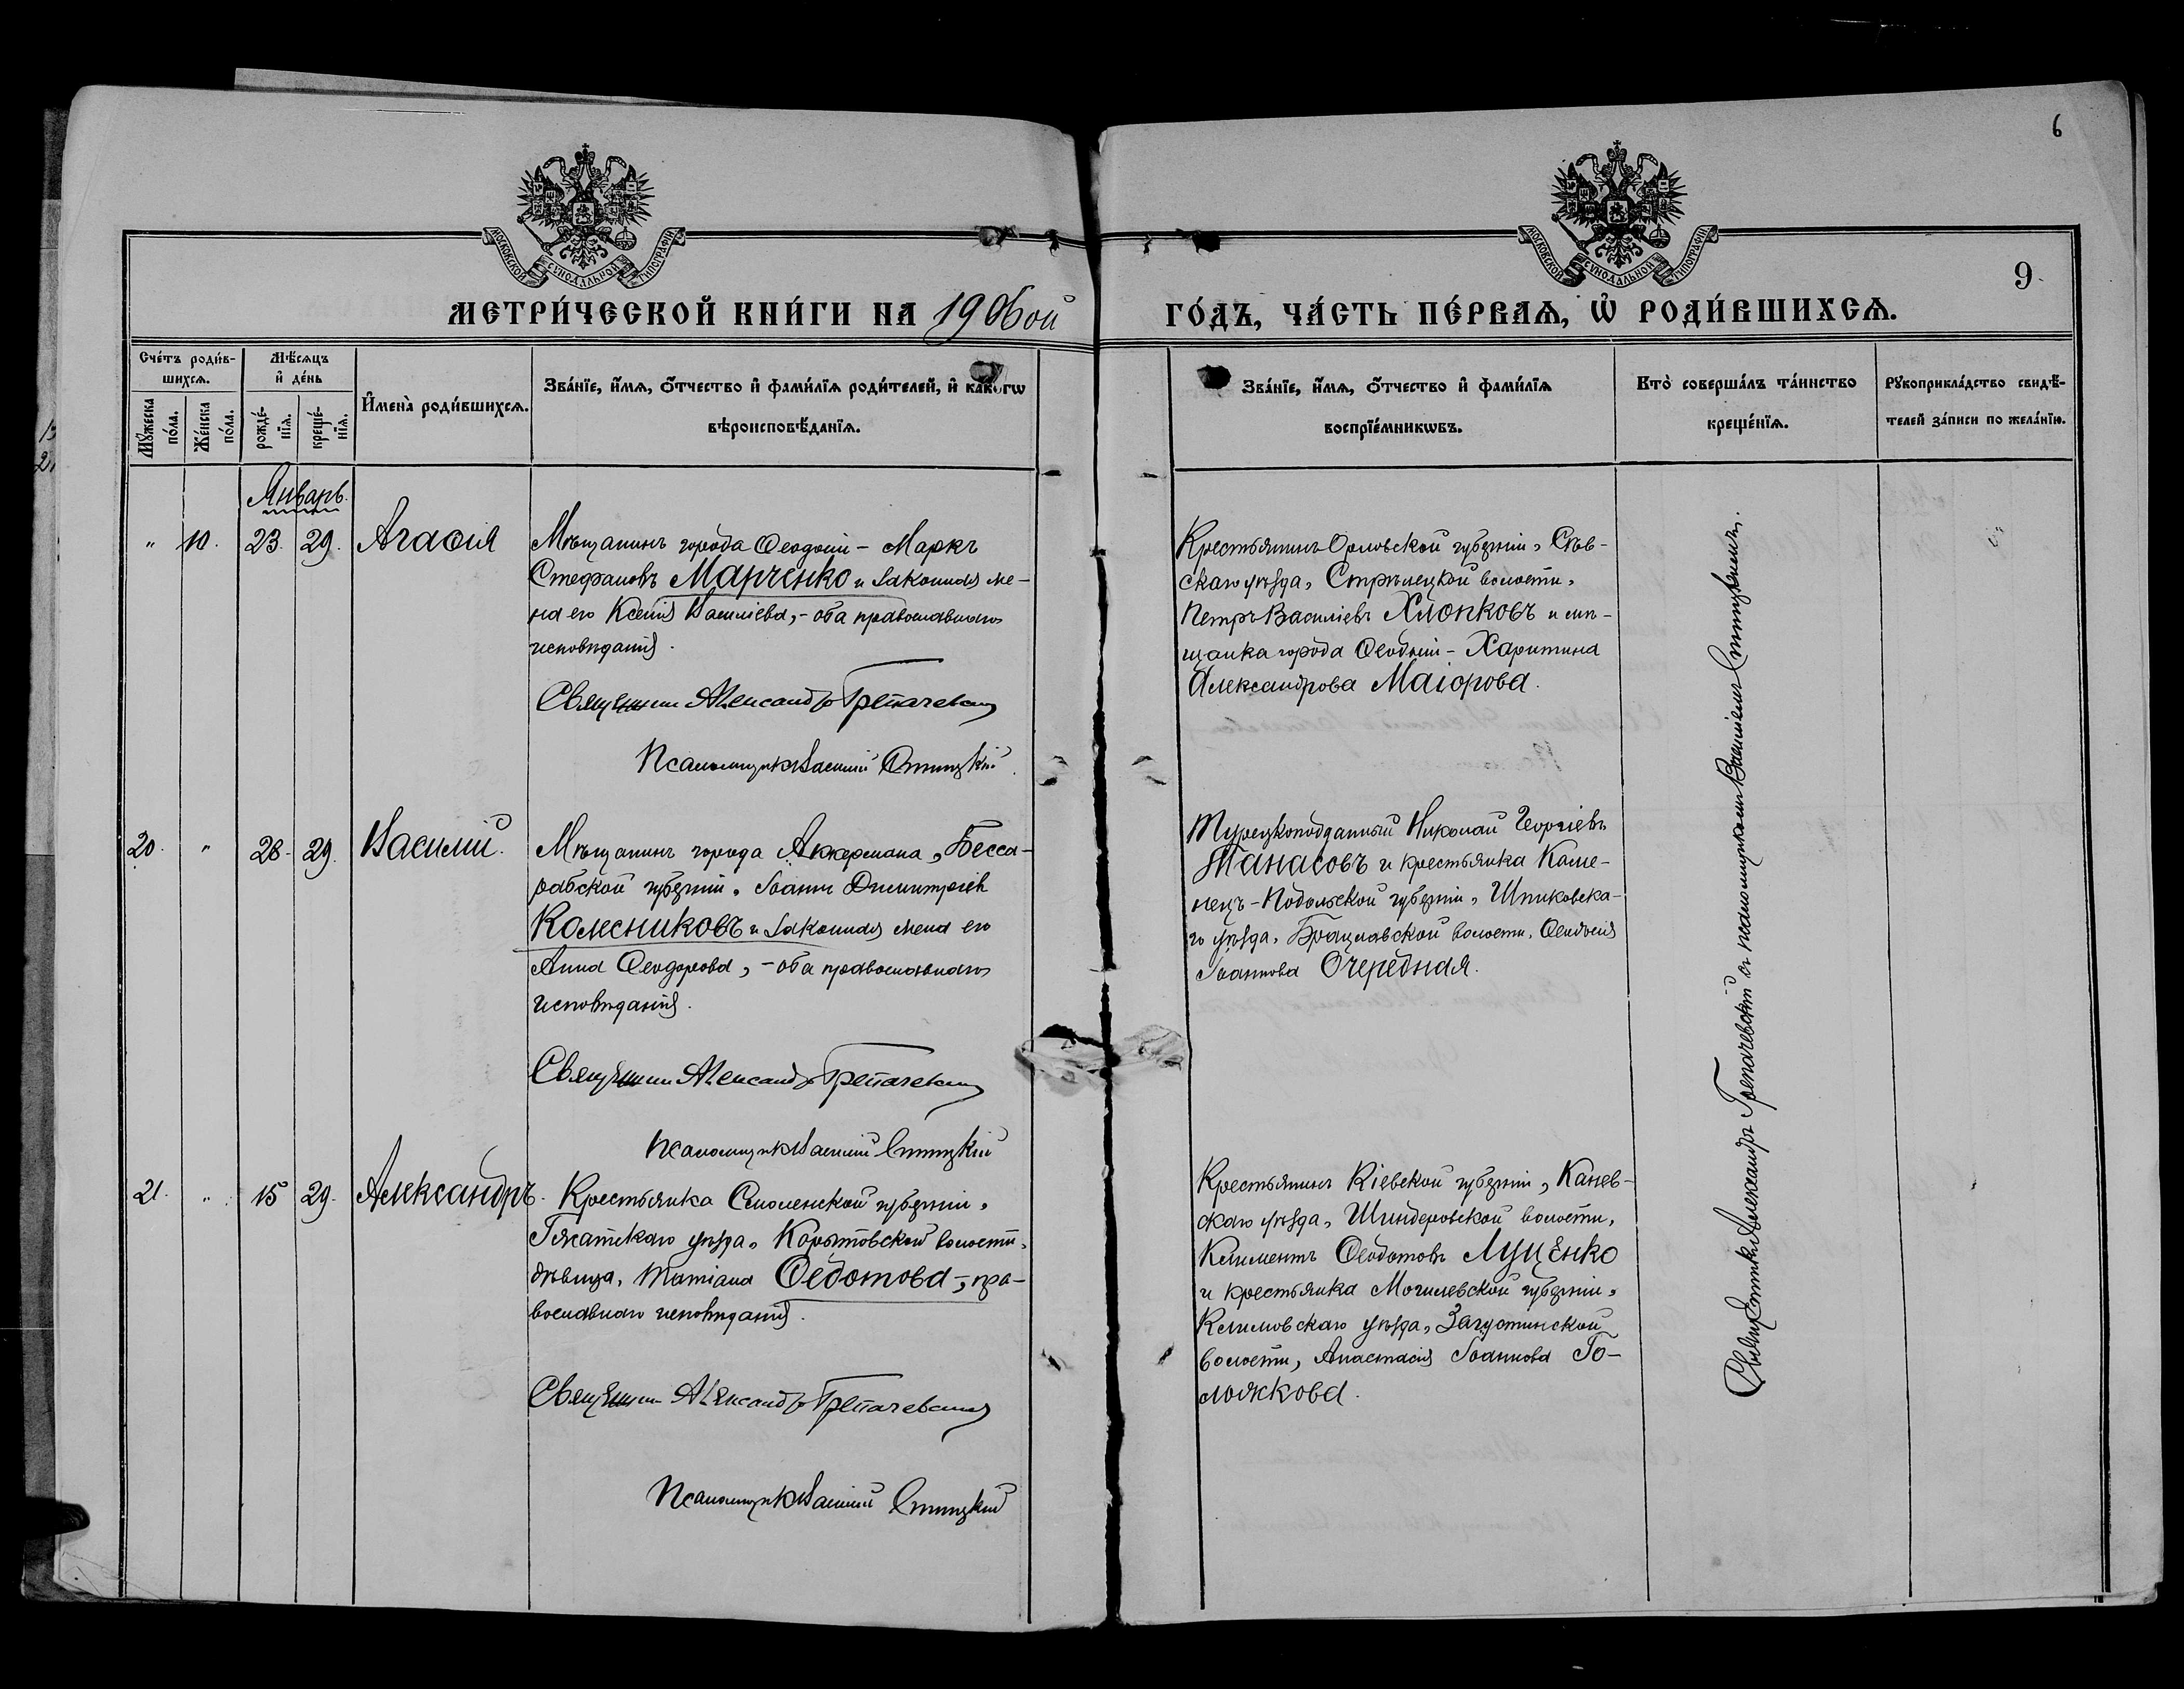 6
МОСКОВСКОЙ СѴНОДАЛЬНОЙ ТИПОГРАФІИ
МОСКОВСКОЙ СѴНОДАЛЬНОЙ ТИПОГРАФІИ
9.
МЕТРИ́ЧЕСКОЙ КНИ́ГИ НА 1906ой
ГО́ДЪ, ЧА́СТЬ ПЕ́РВАЯ, Ѽ РОДИ́ВШИХСЯ.
Сче́тъ роди́в-
шихся.
Мѣ́сяцъ
и҆ де́нь
Мꙋ́жеска
по́ла.
Же́нска
по́ла.
рожде́-
нїя.
креще́-
нїя.
И҆мена̀ роди́вшихся.
Зва́нїе, и҆́мя, ѻ҆́тчество и҆ фами́лїя роди́телей, и҆ како́гѡ
вѣроисповѣ́данїя.
Зва́нїе, и҆́мя, ѻ҆́тчество и҆ фами́лїя
воспрїе́мникѡвъ.
Кто̀ соверша́лъ та́инство
креще́нїя.
Рꙋкоприкла́дство свидѣ́-
телей за́писи по жела́нїю.
Январь.
" 10. 23. 29. Агаѳія
Мѣщанинъ города Ѳеодосіи - Маркъ
Стефановъ Марченко и законная же-
на его Ксенія Василіева, - оба православнаго
исповѣданія.
Священник Александр Грепачевский
Псаломщикъ Василий Стицкій
Крестьянинъ Орловской губерніи, Сѣв-
скаго уѣзда, Стрѣлецкой волости,
Петръ Василіевъ Хлопковъ и мѣ-
щанка города Ѳеодосіи - Харитина
Александрова Маіорова.
20. " 28. 29. Василій.
Мѣщанинъ города Аккермана, Бесса-
рабской губерніи, Іоаннъ Димитріевъ
Колесниковъ и законная жена его
Анна Ѳеодорова, - оба православнаго
исповѣданія.
Священник Александр Грепачевский
Псаломщикъ Василий Стицкій
Турецкоподданный Николай Георгіевъ
Танасовъ и крестьянка Каме-
нецъ-Подольской губерніи, Шпиковска-
го уѣзда, Брацлавской волости, Ѳеодосія
Іоаннова Очередная.
21. " 15 29. Александръ.
Крестьянка Смоленской губерніи,
Гжатскаго уѣзда, Корытовской волости,
дѣвица, Татіана Ѳедотова -, пра-
вославнаго исповѣданія.
Священник Александр Грепачевский
Псаломщикъ Василий Стицкій
Крестьянинъ Кіевской губерніи, Канев-
скаго уѣзда, Шендеровской волости,
Климентъ Ѳеодотовъ Луценко
и крестьянка Могилевской губерніи,
Климовскаго уѣзда, Загустинской
волости, Анастасія Іоаннова Го-
ложкова.
Священникъ Александръ Грепачевскій съ псаломщикомъ Василіемъ Стицкимъ.